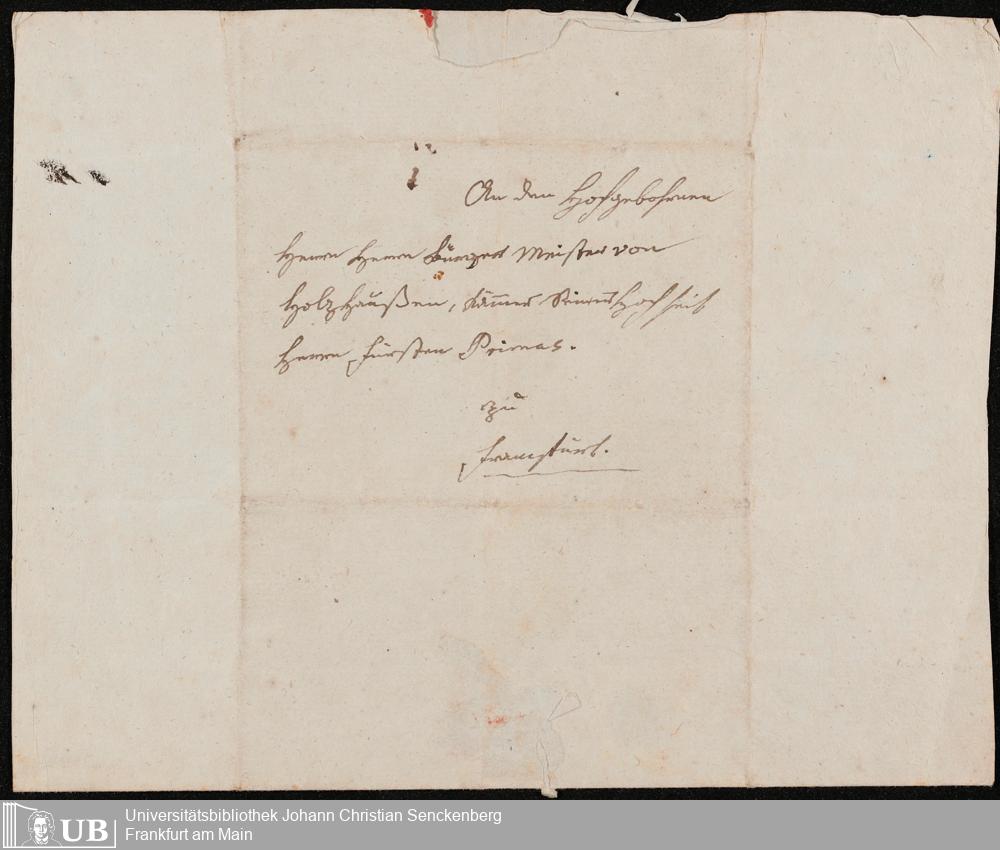 An den Hochgebohrnen
Herrn Herrn Burger Meister von
Holzhaußen, Seiner Hoheit
Herrn Fürsten Primas.
zu
Franckfurt.
UB
Universitätsbibliothek Johann Christian Senckenberg
Frankfurt am Main